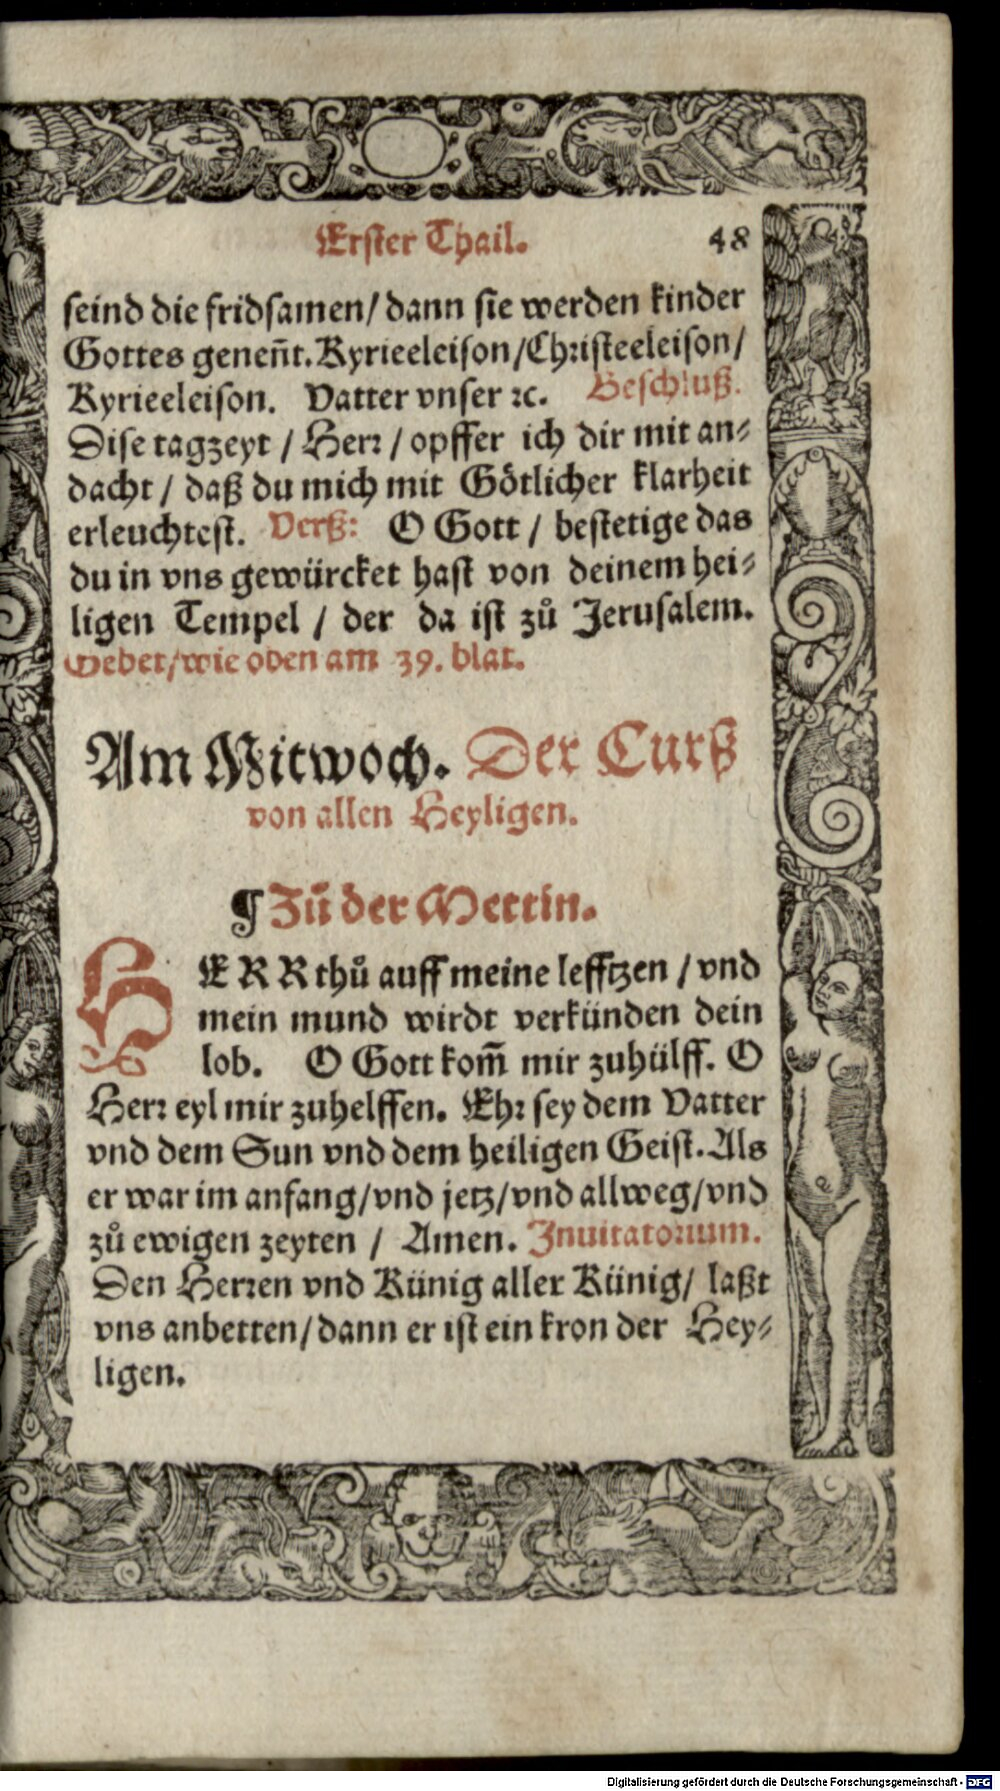 Erster Thail. 48
seind die fridsamen/ dann sie werden kinder
Gottes genen̄t. Kyrieeleison/Christeeleison/
Kyrieeleison. Vatter vnser ꝛc. Beschluß.
Dise tagzeyt / Herr / opffer ich dir mit an-
dacht / daß du mich mit Götlicher klarheit
erleuchtest. Verß: O Gott / bestetige das
du in vns gewürcket hast von deinem hei-
ligen Tempel / der da ist zů Jerusalem.
Gebet/wie oben am 39. blat.
Am Mitwoch. Der Curß
von allen Heyligen.
¶ Zů der Mettin.
HERR thů auff meine lefftzen / vnd
mein mund wirdt verkünden dein
lob. O Gott kom̄ mir zuhülff. O
Herr eyl mir zuhelffen. Ehr sey dem Vatter
vnd dem Sun vnd dem heiligen Geist. Als
er war im anfang/vnd jetz/vnd allweg/vnd
zů ewigen zeyten / Amen. Inuitatorium.
Den Herren vnd Künig aller Künig/ laßt
vns anbetten/dann er ist ein kron der Hey-
ligen.
Digitalisierung gefördert durch die Deutsche Forschungsgemeinschaft - DFG